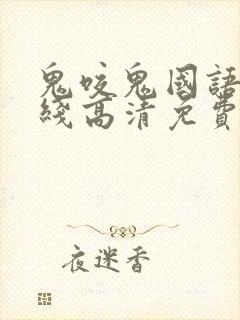 鬼咬鬼國語
綫高清免費
夜迷香